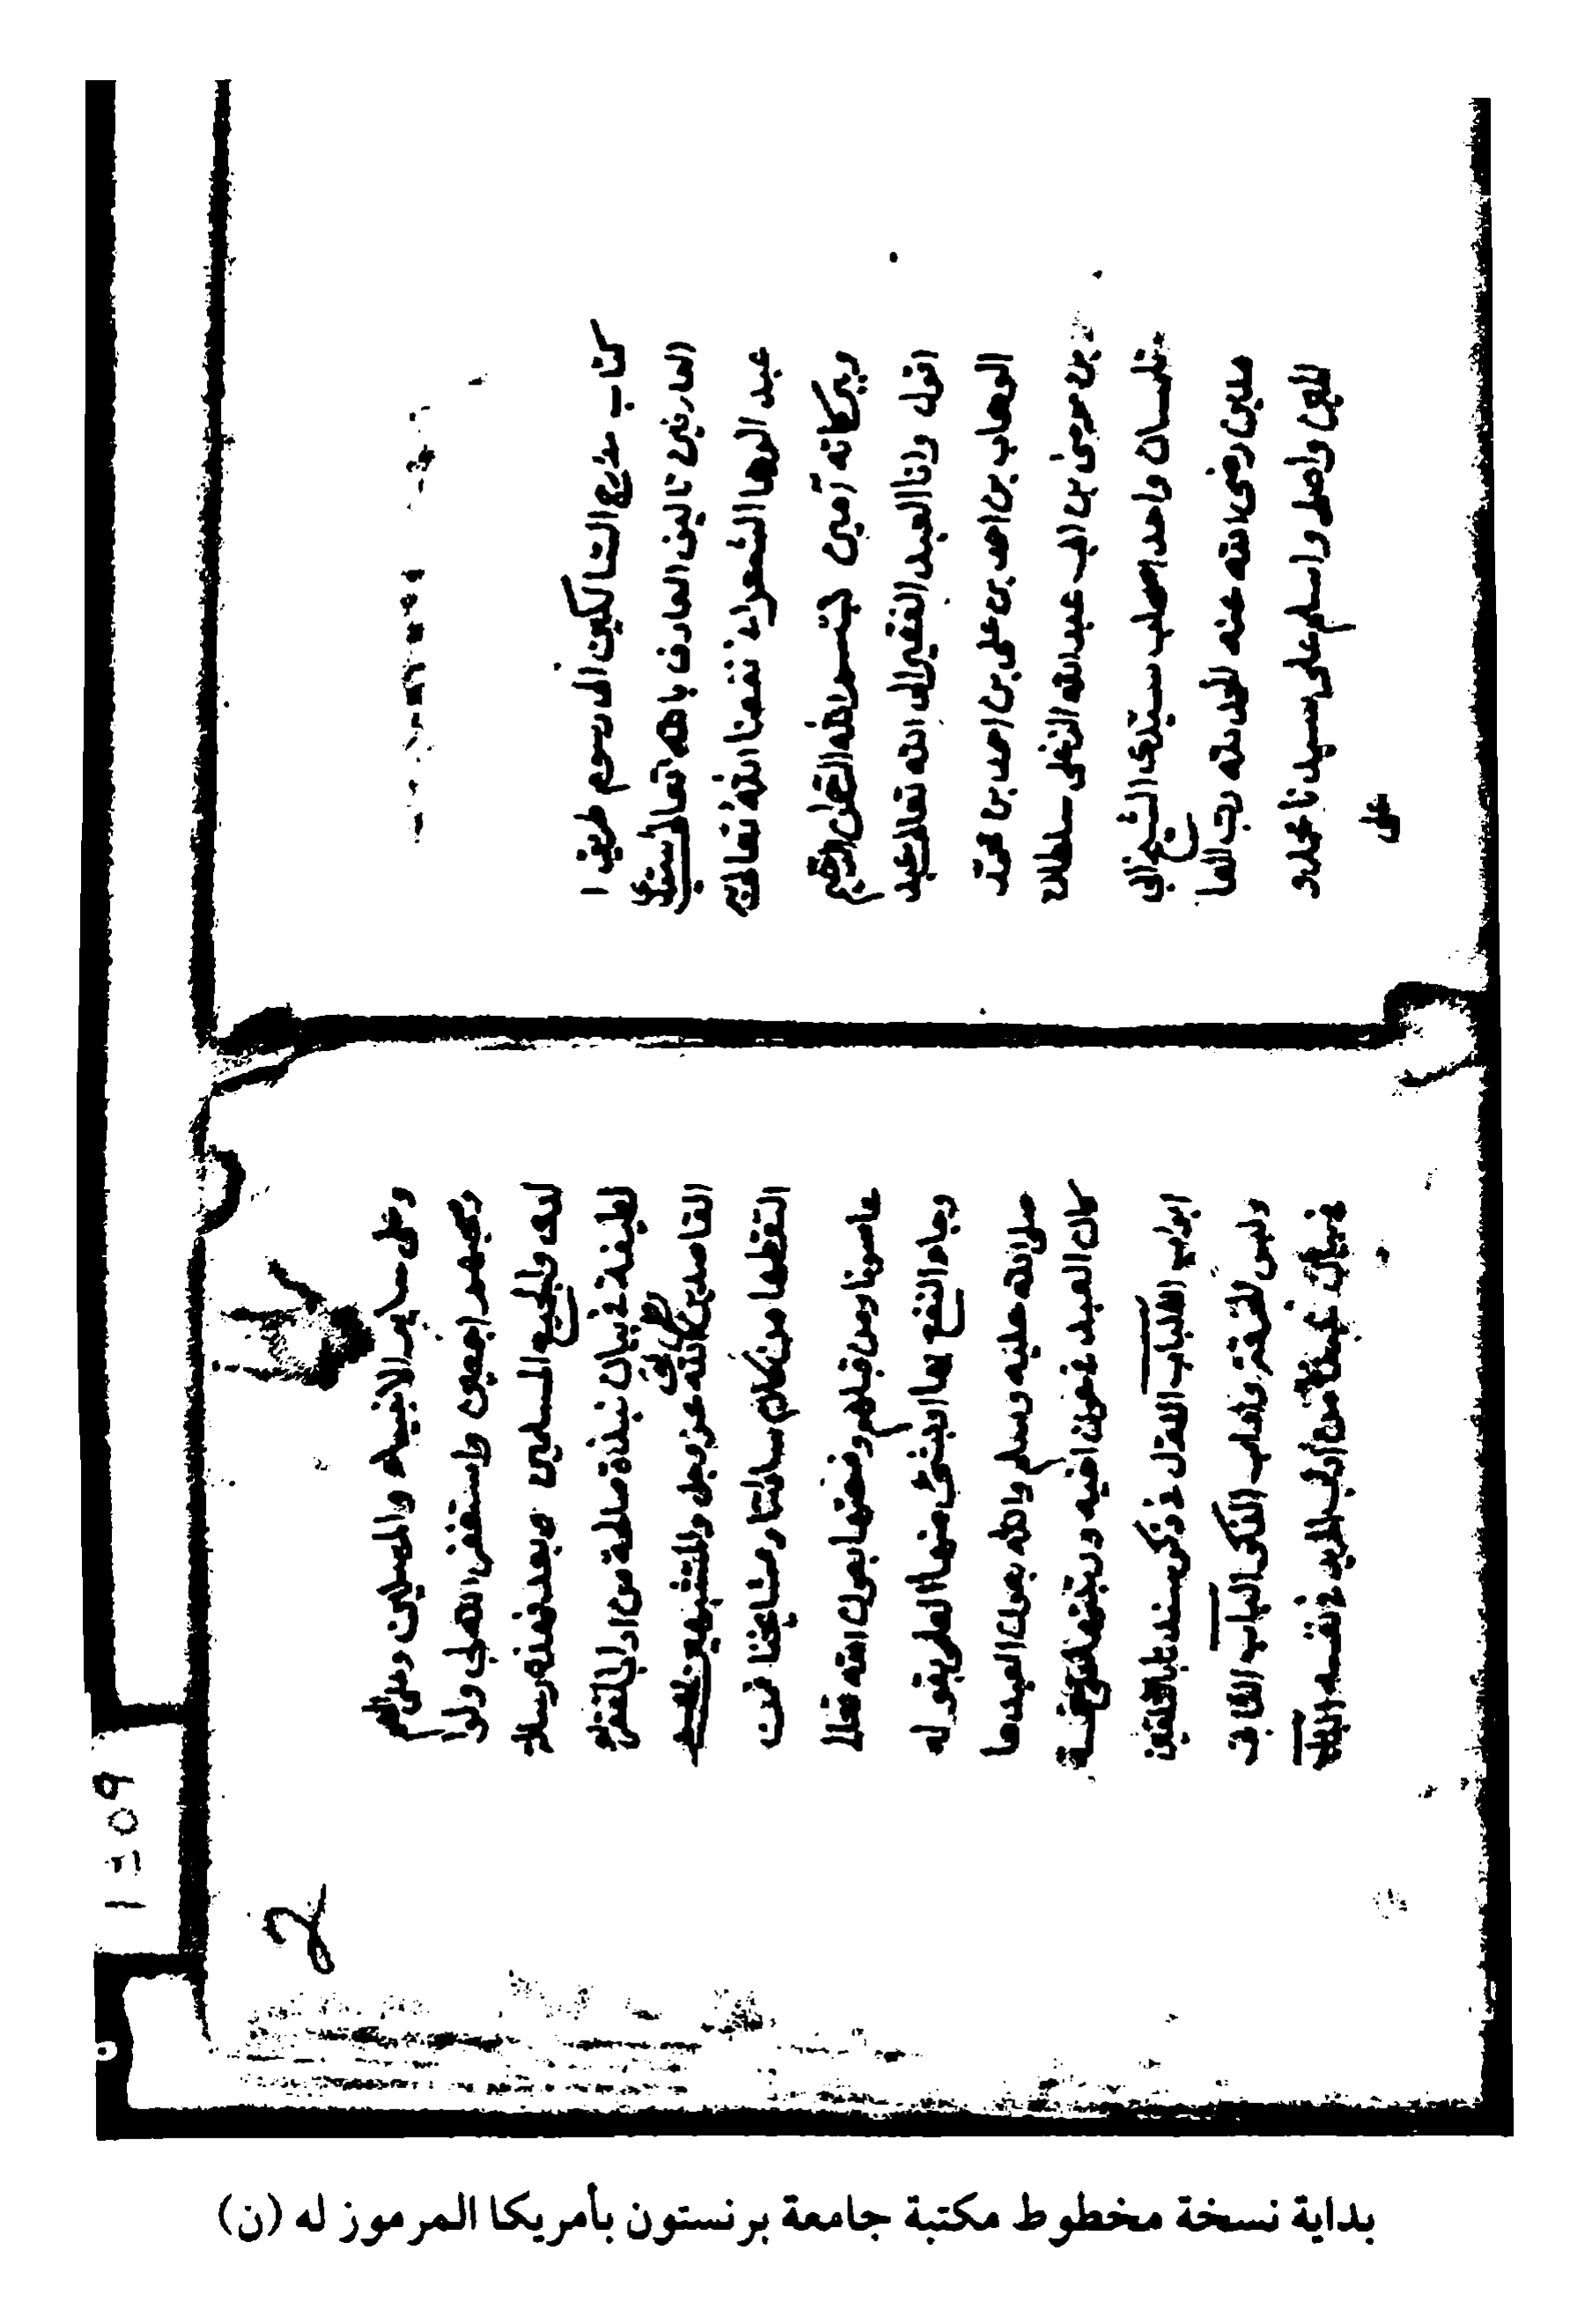 كتاب مدارج السالكين الى رسوم طريق ا
العارفين تاليف العارف بالله تعالى سيدي
عبد الوهاب الشعراني نفعنا الله تعالى به
وببركاته آمين بسم الله الرحمن الرحيم
اقول وانا العبد الفقير الى الله تعالى عبد
الوهاب بن احمد بن علي بن احمد بن محمد
بن موسى بن ابي عبد الله الزغلي سلطان
تلمسان واحد اصحاب سيدي الشيخ ابي
مدين رضي الله عنه الحمد لله رب العا
لمين واصلي واسلم على سيدنا محمد و
على
وعلى ساير الانبياء والمرسلين وعلى الهم
وصحبهم اجمعين واستغفر الله لي ولوا
لدي ولجميع المسلمين وبعد فهذه رسالة
لطيفة في بيان نبذة صالحة من اداب الفقراء
القاصدين الله عز وجل والمتشبهين بهم
رضي الله
التقطها من كلام ساداتنا ومشايخنا ممن
عاصرونا ومن قبلهم وضعتها بعون الله تعالى
رجاء النفع بها او بشيء منها العلي بقوله
صلى الله عليه وسلم والله بعون العبد ما
كان العبد في عون اخيه ورتبتها على خمسة
ابواب الباب الاول في ذكر سند تابا لتلقين
ولبس الخرقة واداب الذكر الباب الثاني
في بيان نبذة من اداب المريد في نفسه الباب
2
١٥٩
بداية نسخة مخطوط مكتبة جامعة برنستون بأمريكا المرموز له (ن)